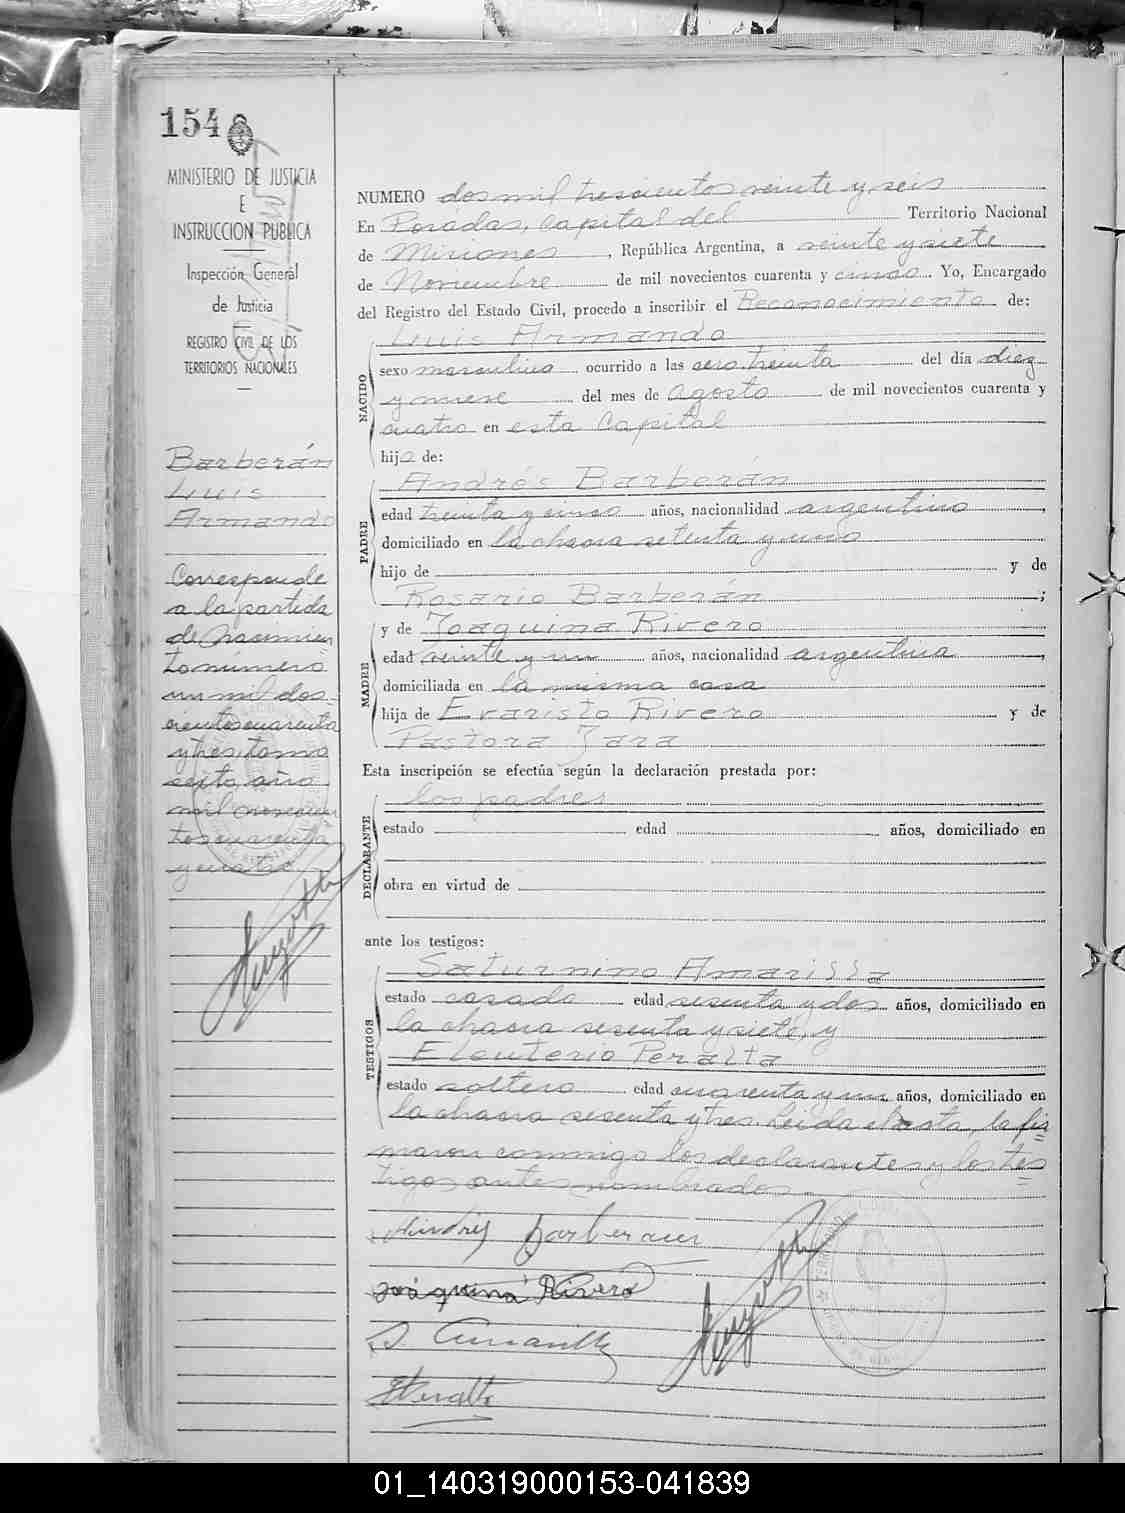 154
MINISTERIO DE JUSTICIA
E
INSTRUCCION PUBLICA
Inspección General
de Justicia
REGISTRO CIVIL DE LOS
TERRITORIOS NACIONALES
Barberán
Luis
Armando
Corresponde
a la partida
de Nacimien
to número
un mil dos
cientos cuarenta
y tres, tomo
sexto, año
mil novecien
tos cuarenta
y cuatro
NUMERO dos mil trescientos veinte y seis
En Posadas, capital del Territorio Nacional
de Misiones, República Argentina, a veinte y siete
de Noviembre de mil novecientos cuarenta y cinco. Yo, Encargado
del Registro del Estado Civil, procedo a inscribir el Reconocimiento de:
Luis Armando
NACIDO
sexo masculino ocurrido a las cero treinta del día diez
y nueve del mes de agosto de mil novecientos cuarenta y
cuatro en esta Capital
hijo de:
Andrés Barberán
PADRE
edad treinta y cinco años, nacionalidad argentino,
domiciliado en la chacra setenta y uno
hijo de y de
Rosario Barberán ;
y de Joaquina Rivero
MADRE
edad veinte y un años, nacionalidad argentina,
domiciliada en la misma casa
hija de Evaristo Rivero y de
Pastora Jara
Esta inscripción se efectúa según la declaración prestada por:
los padres
DECLARANTE
estado edad años, domiciliado en
obra en virtud de
ante los testigos:
Saturnino Amarilla
TESTIGOS
estado casado edad sesenta y dos años, domiciliado en
la chacra sesenta y siete, y
Eleuterio Peralta
estado soltero edad cuarenta y un años, domiciliado en
la chacra sesenta y tres. Leida el acta, la fir=
maron conmigo los declarantes y los tes=
tigos antes nombrados.
Andrés Barberan
Joaquina Rivero
S. Amarilla
E Peralta
01_140319000153-041839